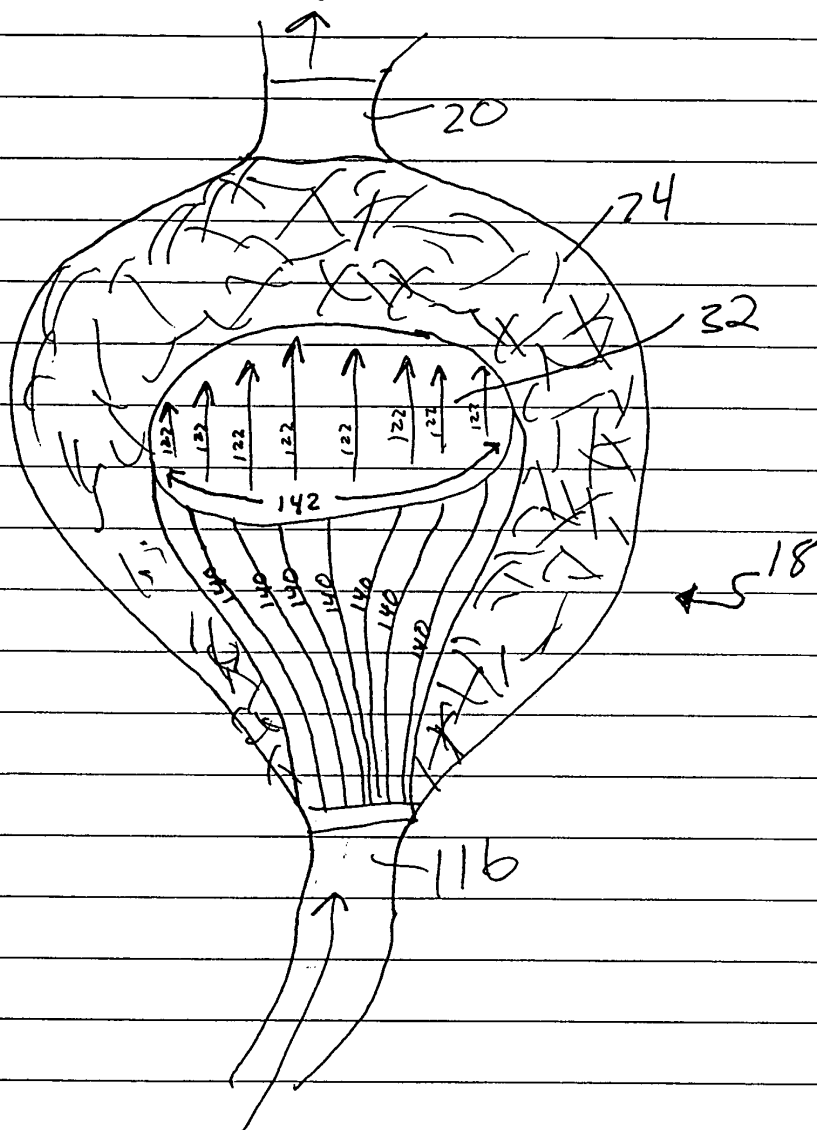 20
24
32
122 122 122 122 122 122 122 122
142
18
140 140 140 140 140 140 140
116